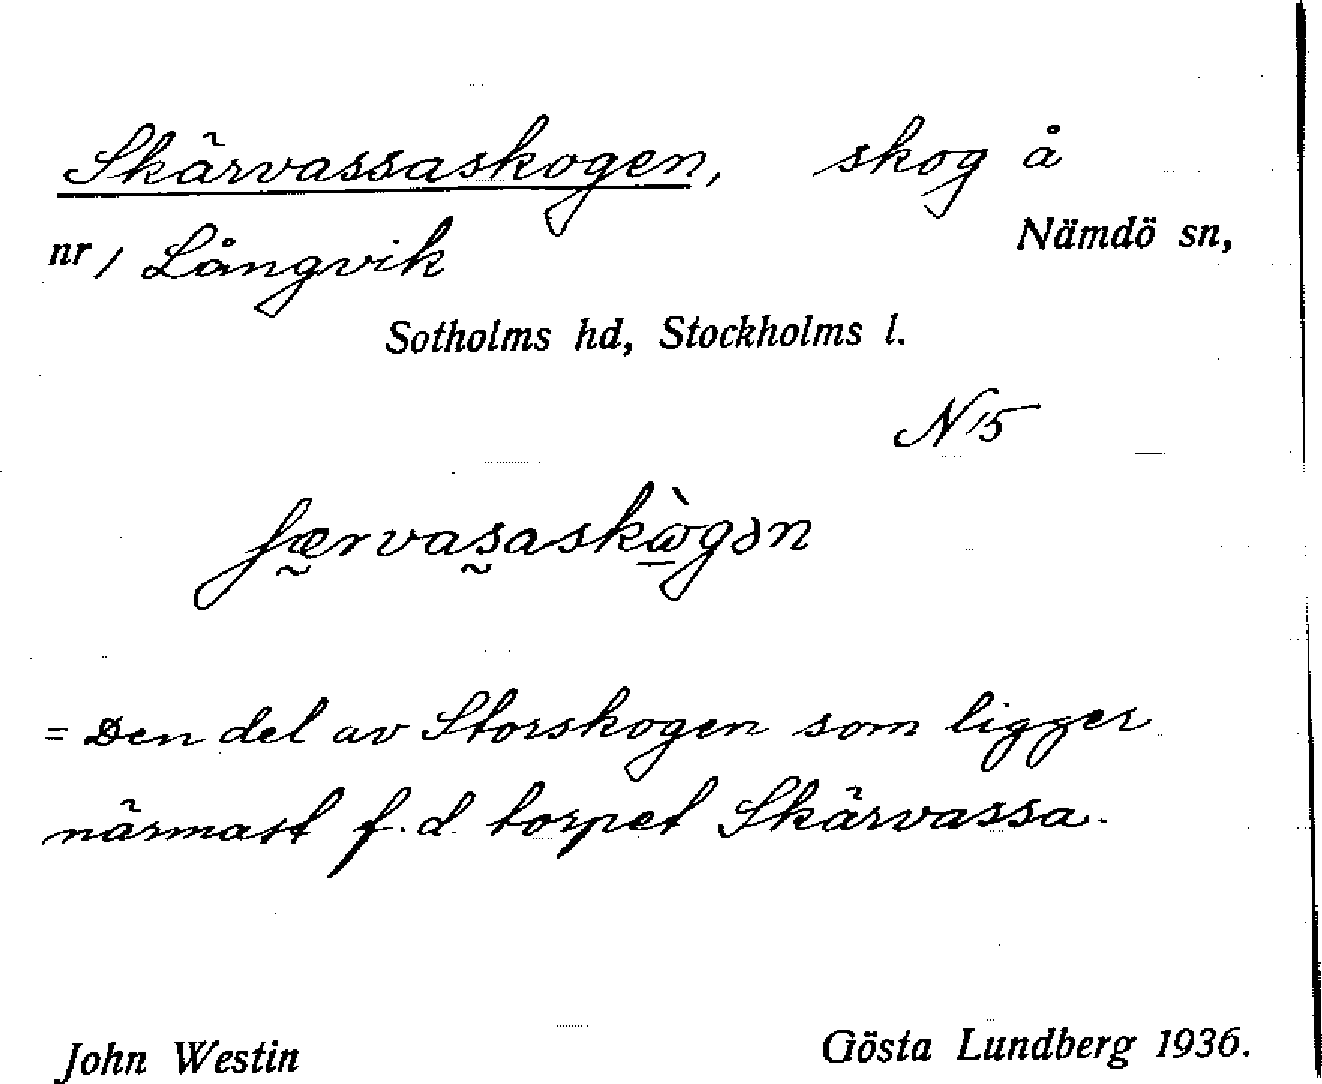 Skärvassaskogen, skog å
nr 1 Långvik Nämdö sn,
Sotholms hd, Stockholms l.
N 15
ʃærvasaskògən
= Den del av Storskogen som ligger
närmast f.d. torpet Skärvassa.
John Westin Gösta Lundberg 1936.